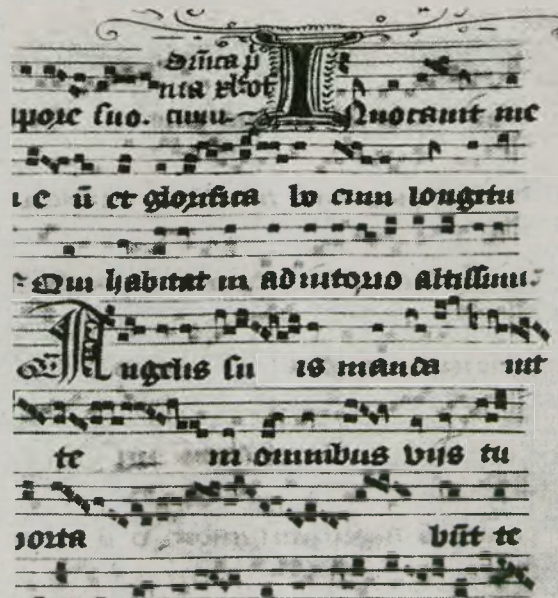 Dnica p
mia xl ot
upore suo. cuiu. INuocauit me
u e ū et glorifica bo eum longitu
Qui habitat in adiutorio altissimi.
Angelis su is manda uit
te in omnibus viis tu
porta būt te